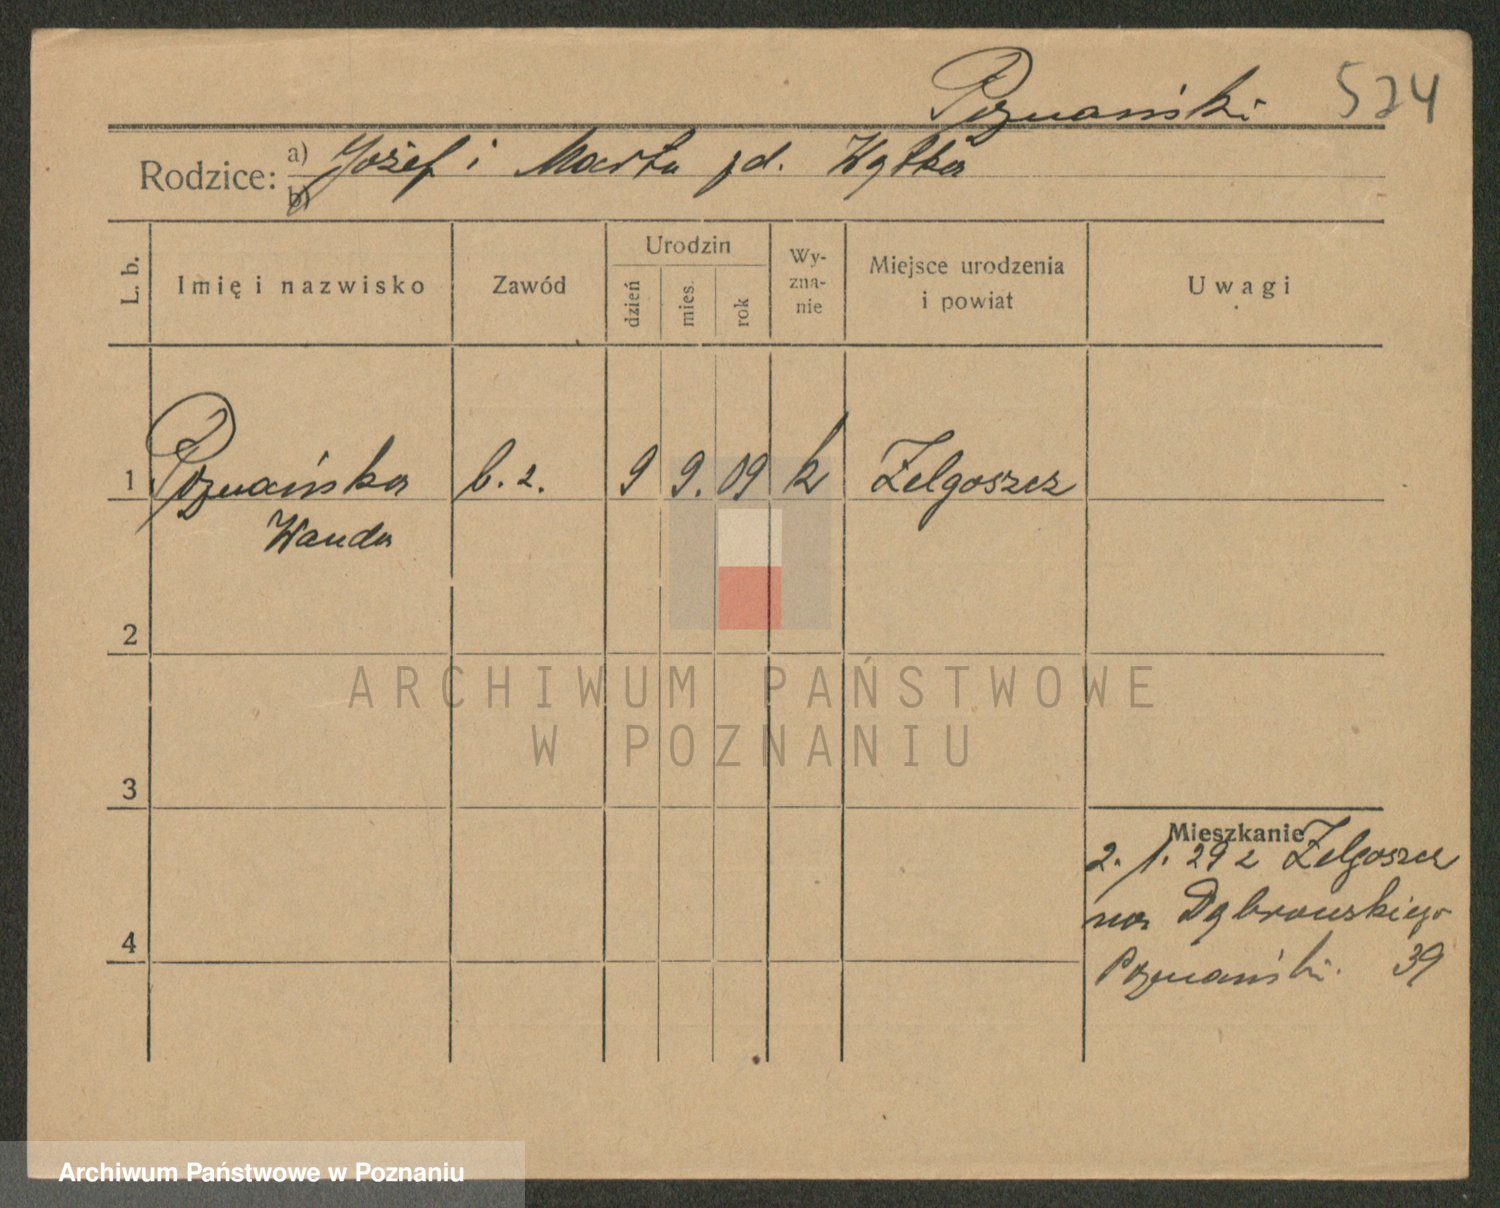 Poznański 524
Rodzice: a) Józef i Marta zd. Wątka
b)
L. b. Imię i nazwisko Zawód Urodzin dzień mies. rok Wy-zna-nie Miejsce urodzenia i powiat Uwagi
1 Poznańska b. z. 9 9. 09 k Zelgoszcz
Wanda
2
ARCHIWUM PAŃSTWOWE
W POZNANIU
3
Mieszkanie
2. 1. 29 z Zelgoszcz
na Dąbrowskiego
Poznański. 39
4
Archiwum Państwowe w Poznaniu